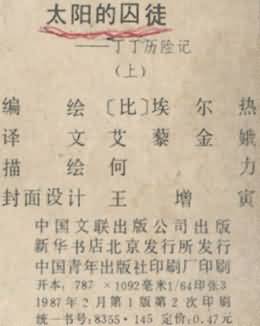 太阳的囚徒
——丁丁历险记
(上)
编 绘 〔比〕埃尔热
译 文 艾黎金娥
描 绘 何 力
封面设计 王增寅
中国文联出版公司出版
新华书店北京发行所发行
中国青年出版社印刷厂印刷
开本：787×1092毫米1/64印张3
1987年2月第1版第2次印刷
统一书号：8355·145 定价：0.47元